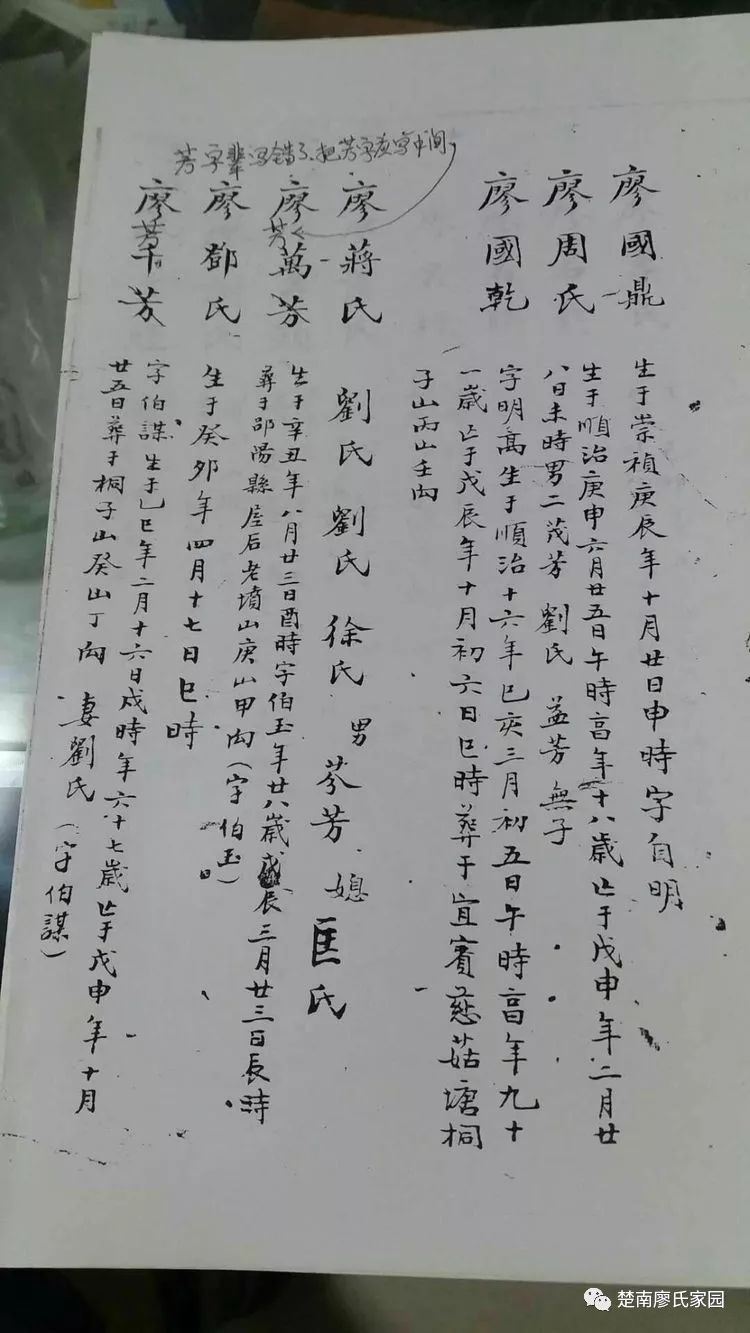 芳字辈写错了、把芳字应写中间
廖國鼎
生于崇禎庚辰年十月廿日申時字自明
廖周氏
生于順治庚申六月廿五日午時高年十八歲亡于戊申年二月廿
八日未時男二茂芳 劉氏 益芳 無子
廖國乾
字明高生于順治十六年已亥三月初五日午時高年九十
一歲亡于戊辰年十月初六日巳時葬于宜賓慈菇塘桐
子山丙山壬向
廖蔣氏
劉氏 劉氏 徐氏 男 芬芳 媳 匡氏
廖萬芳
芳
生于辛丑年八月廿三日酉時字伯玉年廿八歲戊辰三月廿三日辰時
葬于邵陽縣屋后老墳山庚山甲向(字伯玉)
廖鄧氏
生于癸卯年四月十七日巳時
廖千芳
芳
字伯謀生于乙巳年二月十六日戍時年六十七歲亡于戊申年十月
廿五日葬于桐子山癸山丁向 妻劉氏(字伯謀)
楚南廖氏家园